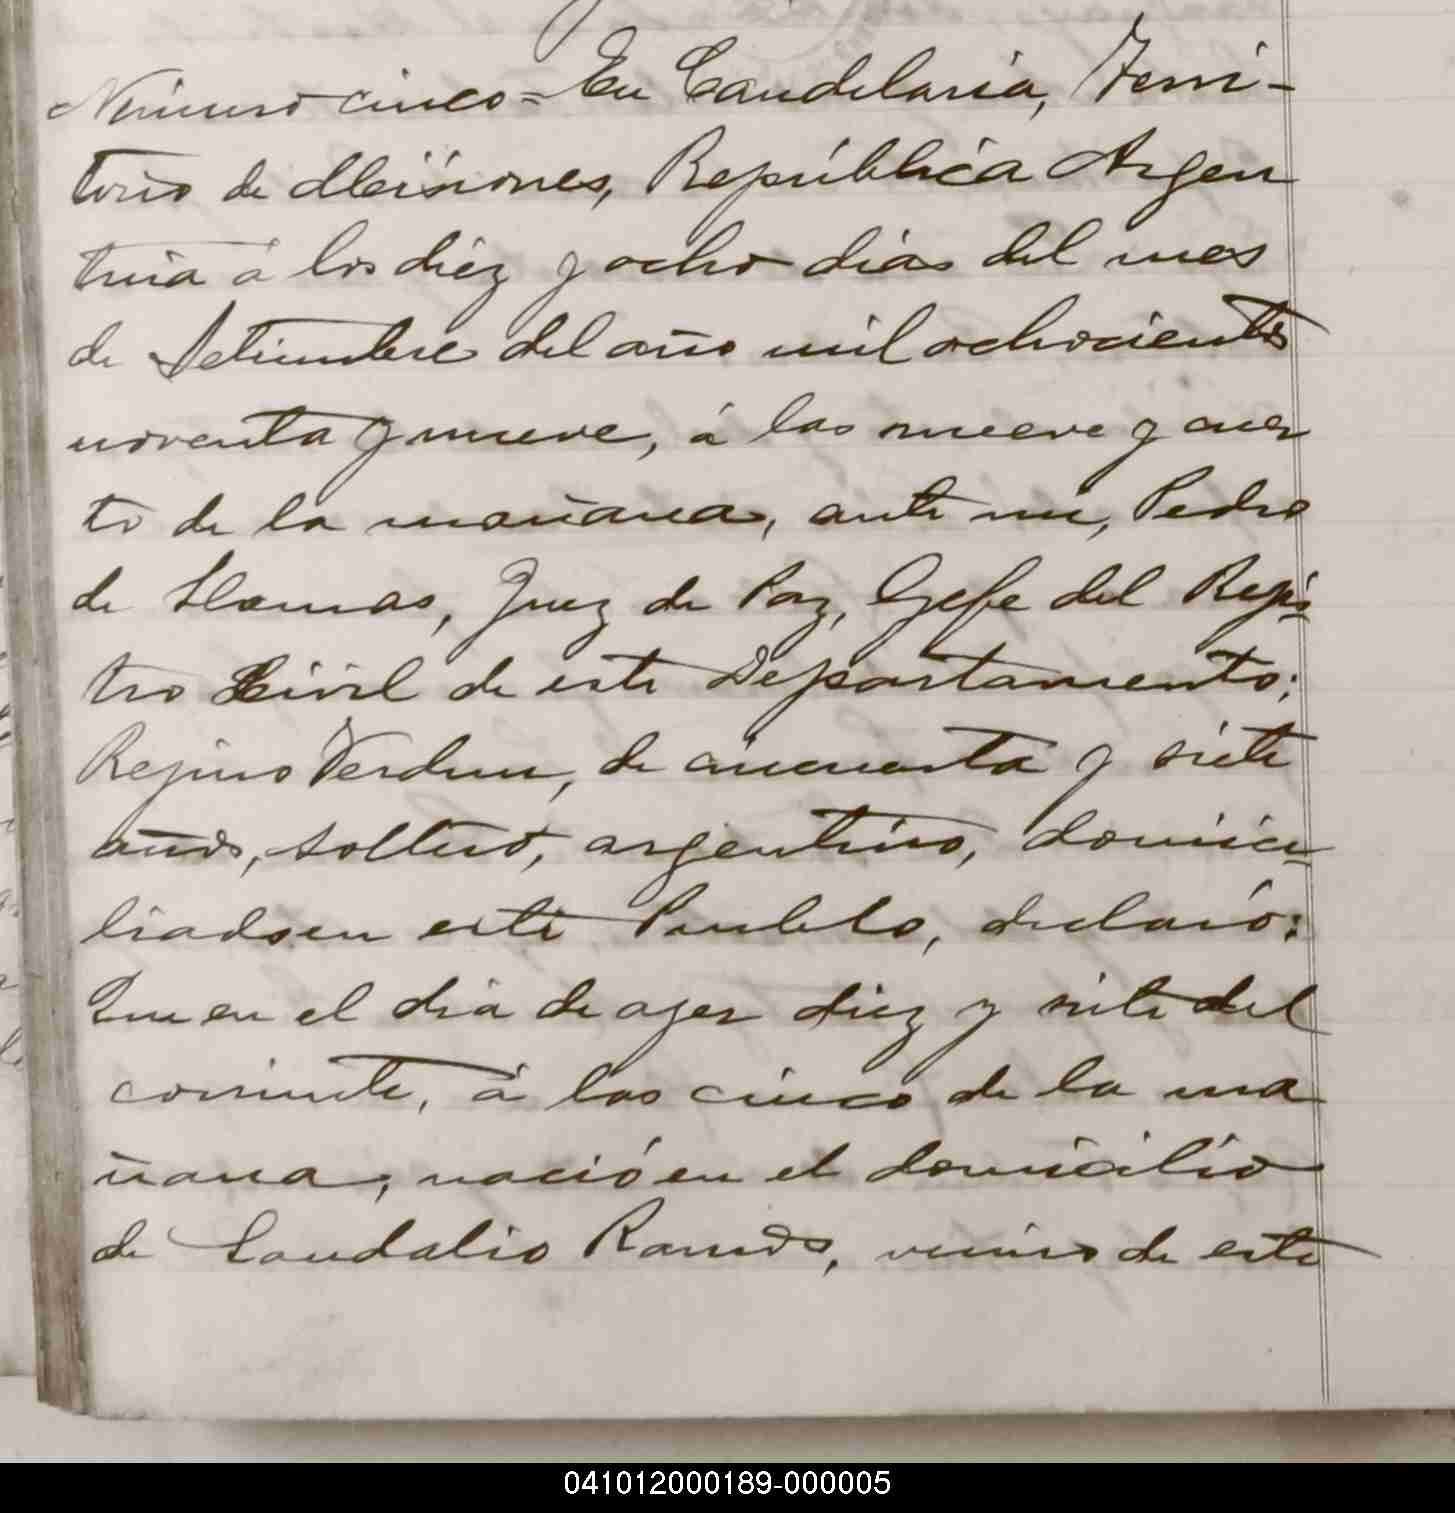 Número cinco = En Candelaria, Terri-
torio de Misiones, República Argen
tina á los diez y ocho dias del mes
de Setiembre del año mil ochocientos
noventa y nueve, á las nueve y cuar
to de la mañana, ante mi, Pedro
de Llamas, Juez de Paz, Gefe del Regis-
tro Civil de este Departamento;
Regino Verdun, de cincuenta y siete
años, soltero, argentino, domici-
liado en este Pueblo, declaró:
Que en el dia de ayer diez y siete del
corriente, á las cinco de la ma
ñana, nació en el domicilio
de Sandalio Ramos, vecino de este
041012000189-000005